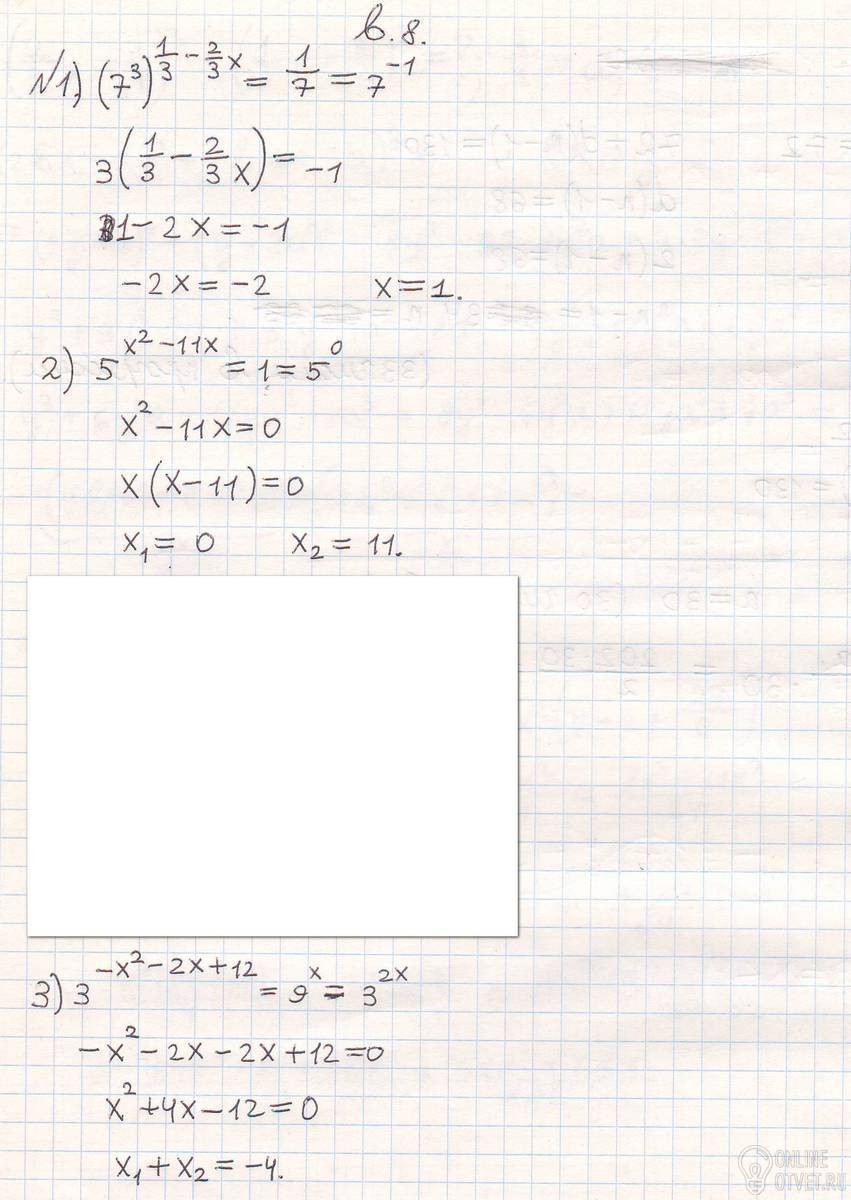 в. 8.
№1) (7³)^(1/3 − 2/3 x) = 1/7 = 7⁻¹
3(1/3 − 2/3 x) = −1
1 − 2x = −1
−2x = −2 x = 1.
2) 5^(x² − 11x) = 1 = 5⁰
x² − 11x = 0
x(x − 11) = 0
x₁ = 0 x₂ = 11.
3) 3^(−x² − 2x + 12) = 9^x = 3^(2x)
−x² − 2x − 2x + 12 = 0
x² + 4x − 12 = 0
x₁ + x₂ = −4.
ONLINE
OTVET.RU